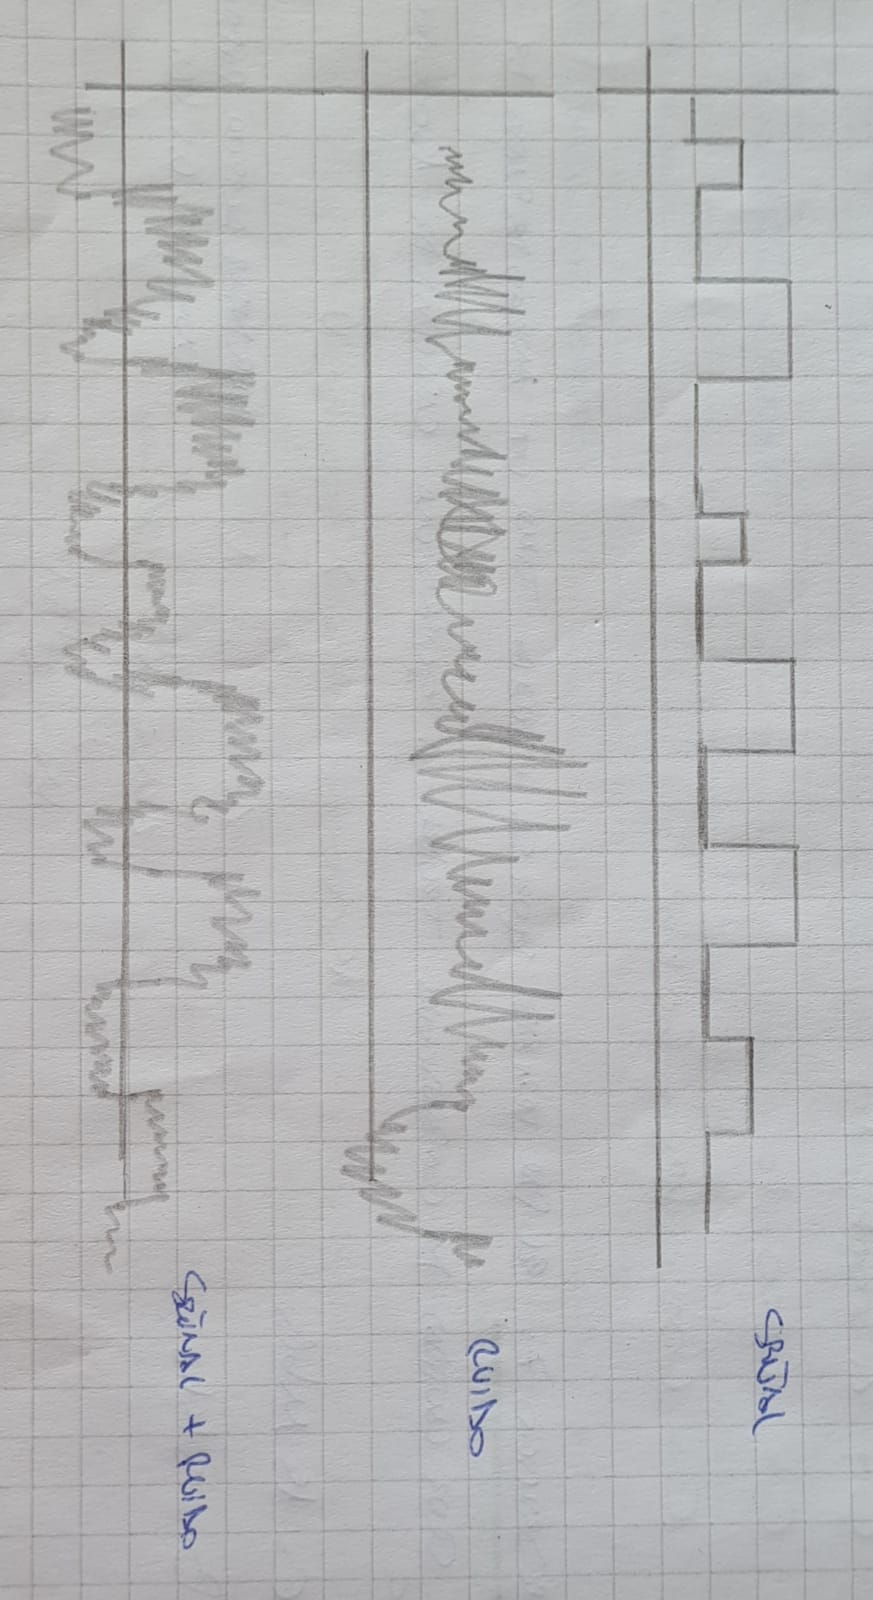 SEÑAL
RUIDO
SEÑAL + RUIDO